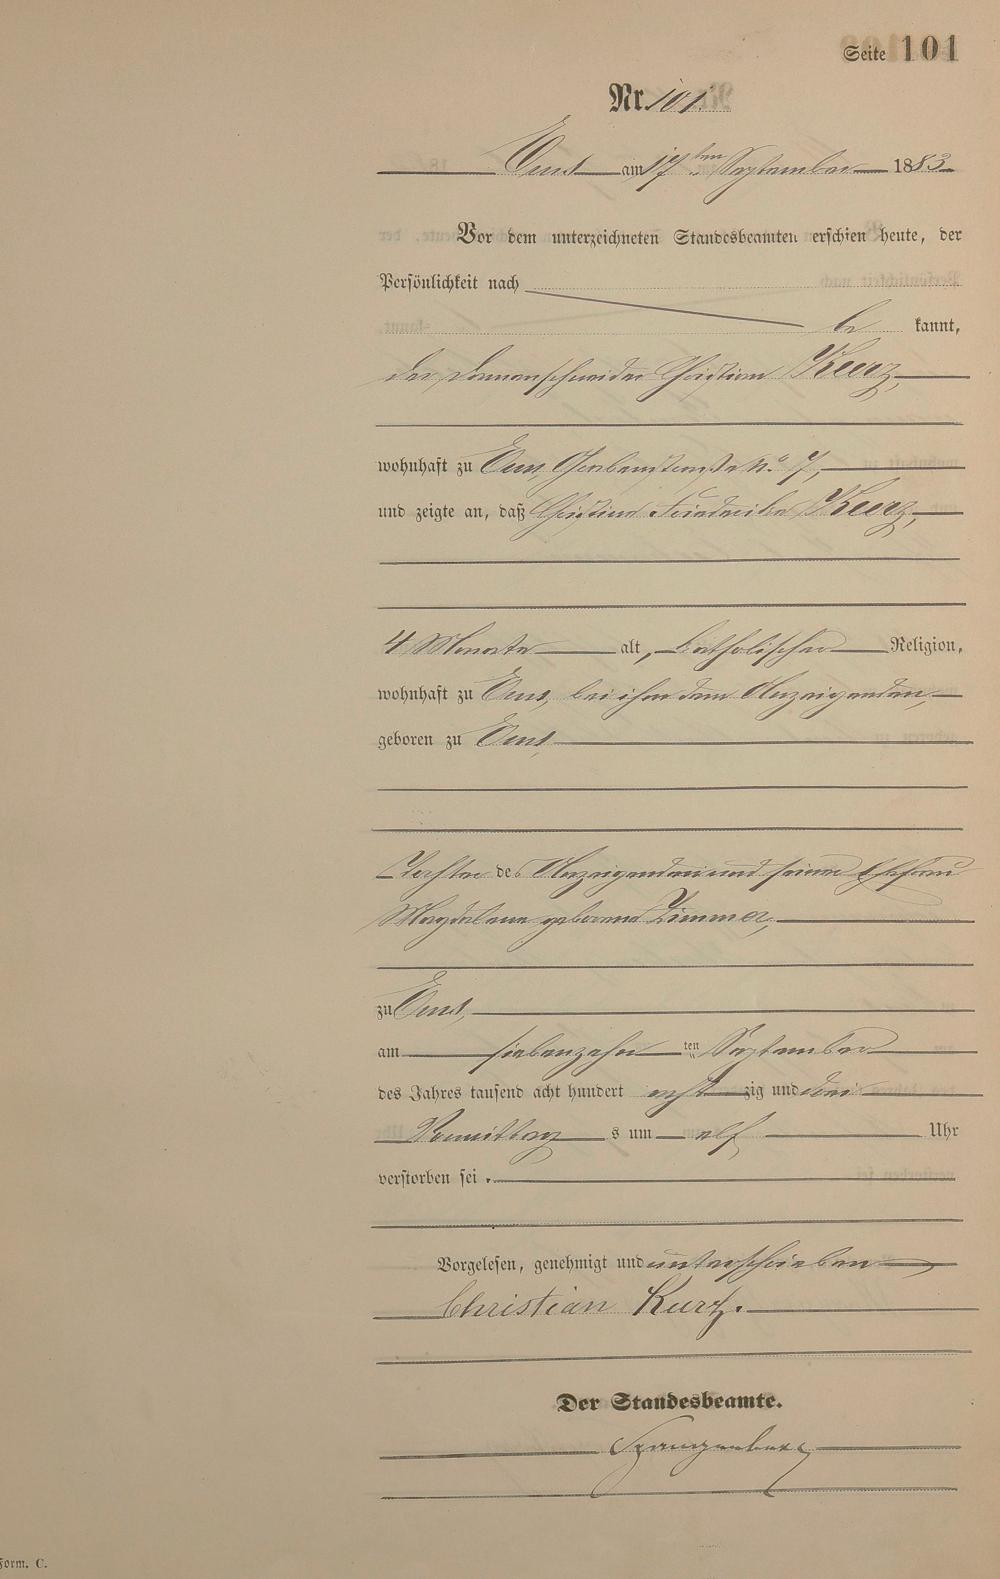 Seite 101
Nr. 101.
Ems am 17ten September 1883
Vor dem unterzeichneten Standesbeamten erschien heute, der
Persönlichkeit nach
be kannt,
der Damenschneider Christian Kurz,
wohnhaft zu Ems, Grabenstraße No. 7,
und zeigte an, daß Christina Friederika Kurz,
4 Monate alt, katholischer Religion,
wohnhaft zu Ems, bei ihm dem Anzeigenden,
geboren zu Ems,
Tochter des Anzeigenden und seiner Ehefrau
Magdalena geborene Zimmer,
zu Ems,
am siebenzehn ten September
des Jahres tausend acht hundert acht zig und drei
Vormittag s um elf Uhr
verstorben sei.
Vorgelesen, genehmigt und unterschrieben
Christian Kurz.
Der Standesbeamte.
Spangenberg
Form. C.